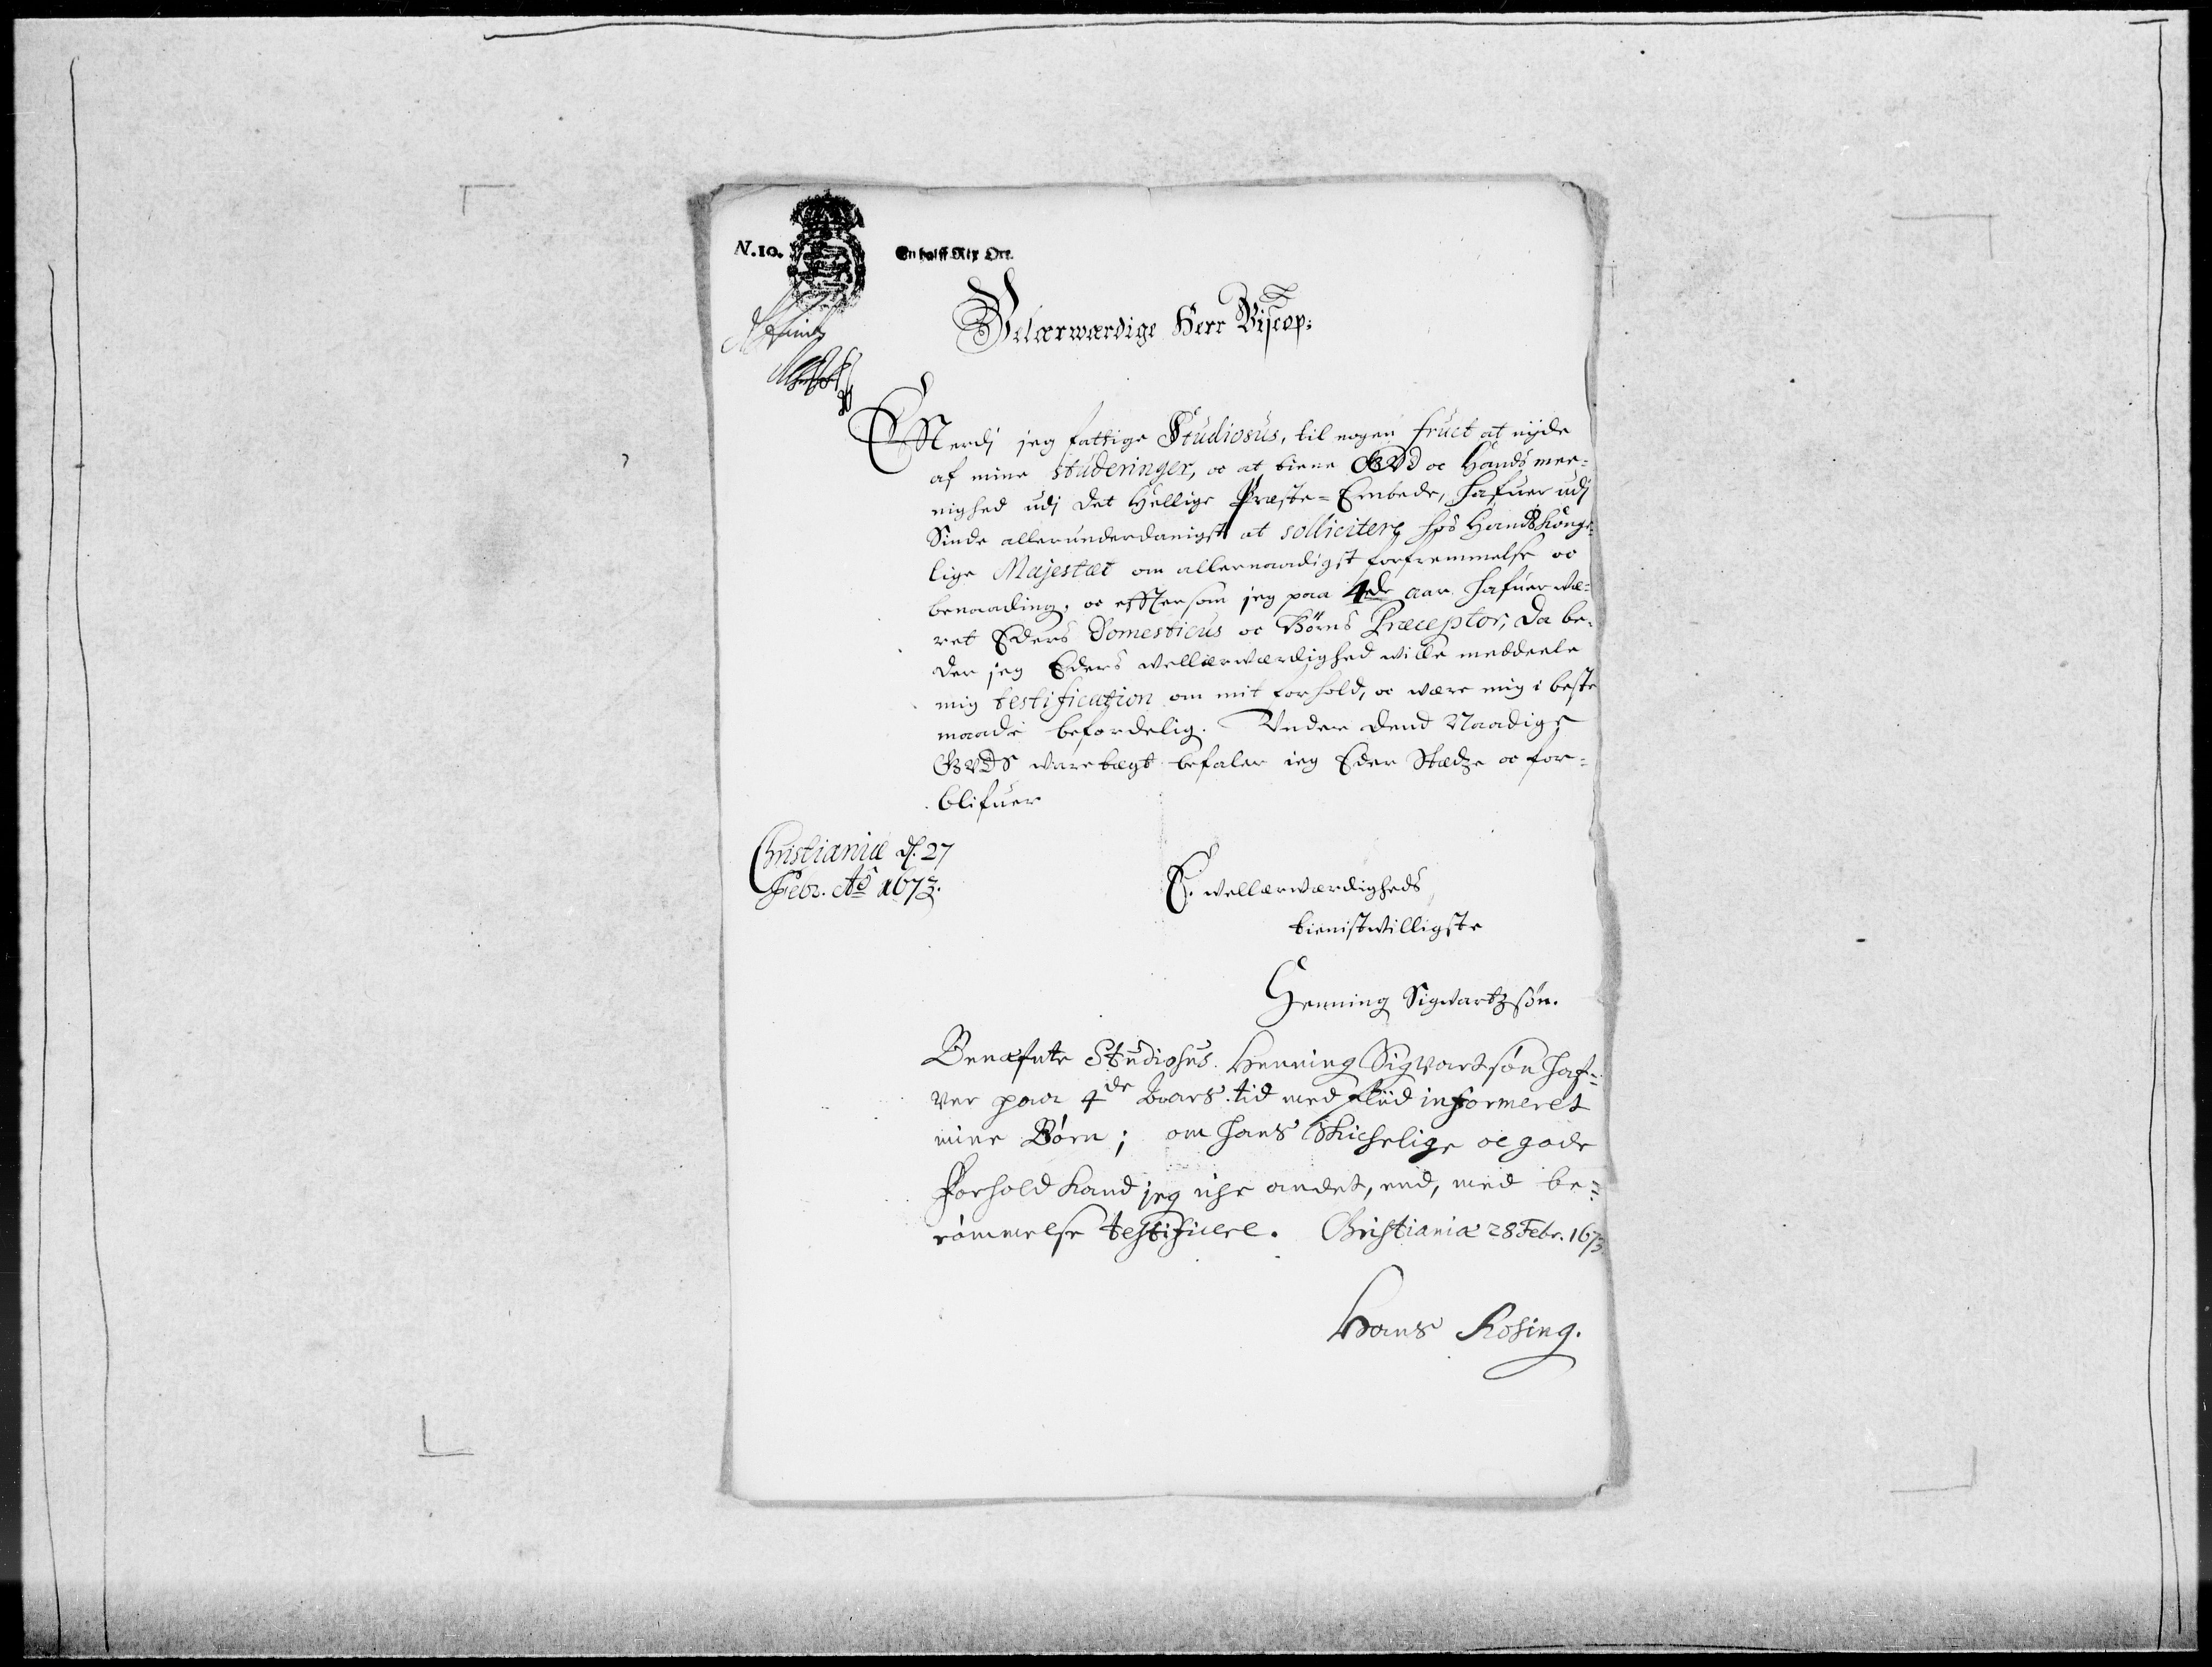 N.10.
En halff Rix Ort.
Velærwærdige Herr Biscop:
Efterdj jeg fattige Studiosus, til nogen fruct at nyde
af mine studeringer, oc at tiene GVd oc Hands mee=
nighed udj det Hellige Præste=Embede, hafuer udj
Sinde allerunderdanigst at sollicitere hos Hands Konge=
lige Majestæt om allernaadigst forfremmelse oc
benaading, oc effterson jeg paa 4de aar hafuer væ=
ret Eders Domesticus oc Børns Præceptor, Da be=
der jeg Eders Vellærværdighed wille meddeele
mig testification om mit forhold, oc være mig i beste
maade befordelig. Vnder dend Naadige
GVDS varetægt befaler ieg Eder Stædze oc for=
blifuer
Christianiæ d. 27
Febr. Aõ 1673.
E. Vellærværdigheds
tienistvilligste
Henning Sigvartzsøn.
Benæfnte Studiosus Henning Sigvartsøn haf=
ver paa 4de Aars tid med flid informeret
mine Børn; om hans Skichelige oc gode
Forhold kand jeg iche andet, end, med be=
rømmelse testificere. Christianiæ 28 Febr. 1673.
Hans Rosing.